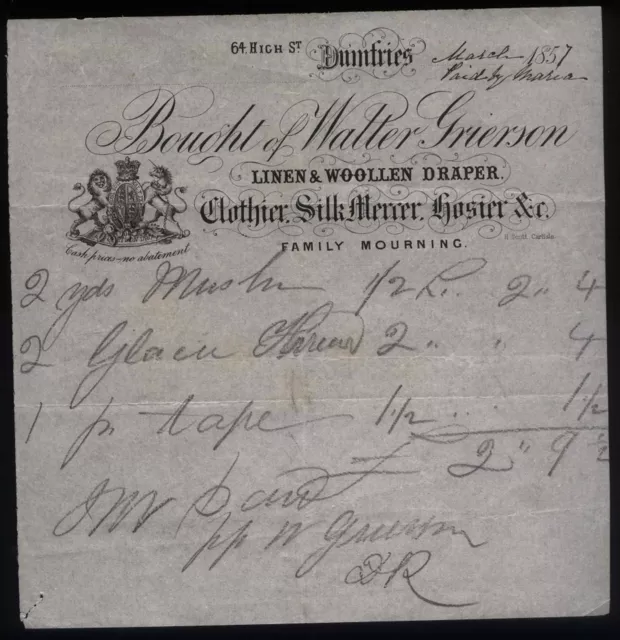 64 HIGH ST. Dumfries March 1857
Paid by Maria
Bought of Walter Grierson
LINEN & WOOLLEN DRAPER.
Clothier, Silk Mercer, Hosier &c.
Cash prices—no abatement
FAMILY MOURNING.
2 yds Muslin 1/2 2 " 4
2 Glace Thread 2 " " 4
1 pc tape 1 1/2 ... 1 1/2
2 " 9 1/2
paid
pp W Grierson
DR